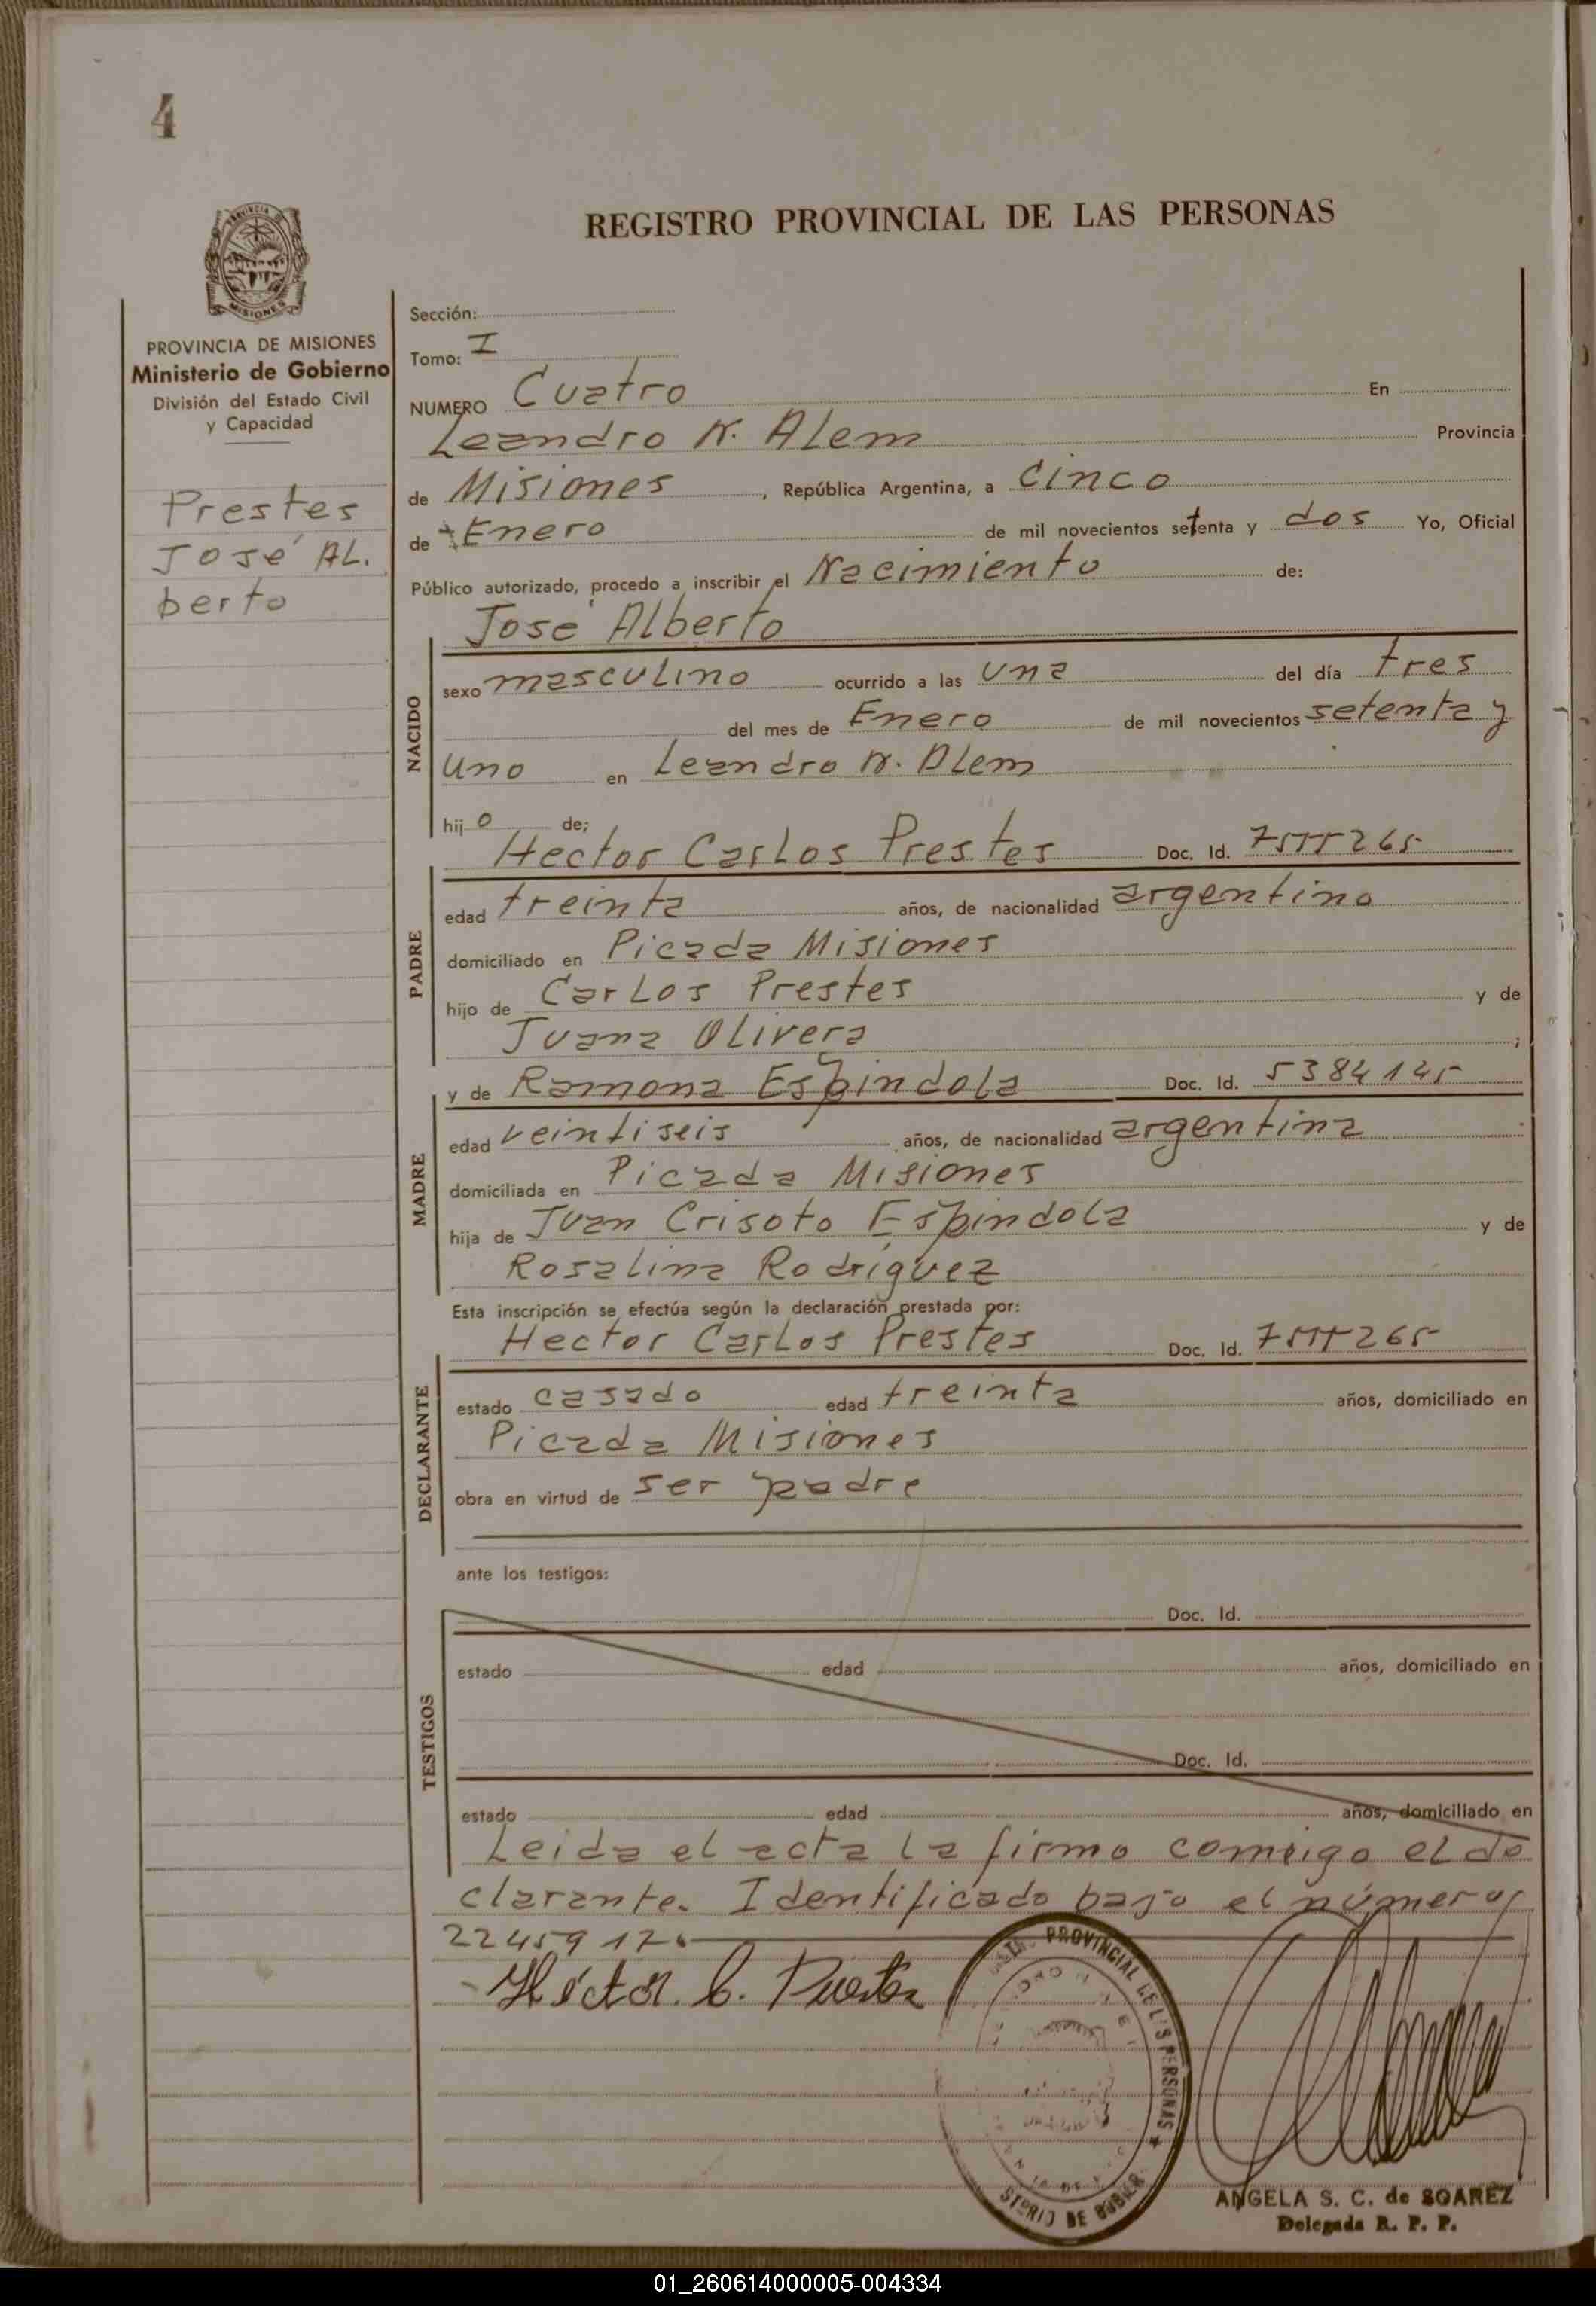 4
REGISTRO PROVINCIAL DE LAS PERSONAS
MISIONES
PROVINCIA DE MISIONES
Ministerio de Gobierno
División del Estado Civil
y Capacidad
Prestes
José AL.
berto
Sección:
Tomo: I
NUMERO Cuatro En
Leandro N. Alem Provincia
de Misiones, República Argentina, a Cinco
de Enero de mil novecientos setenta y dos Yo, Oficial
Público autorizado, procedo a inscribir el Nacimiento de:
José Alberto
NACIDO
sexo masculino ocurrido a las una del día tres
del mes de Enero de mil novecientos setenta y
uno en Leandro N. Alem
hijo de;
Hector Carlos Prestes Doc. Id. 7555265
PADRE
edad treinta años, de nacionalidad argentino
domiciliado en Picada Misiones
hijo de Carlos Prestes y de
Juana Olivera ;
y de Ramona Espindola Doc. Id. 5384145
MADRE
edad veintiseis años, de nacionalidad argentina
domiciliada en Picada Misiones
hija de Juan Crisoto Espindola y de
Rosalina Rodríguez
Esta inscripción se efectúa según la declaración prestada por:
Hector Carlos Prestes Doc. Id. 7555265
DECLARANTE
estado casado edad treinta años, domiciliado en
Picada Misiones
obra en virtud de ser padre
ante los testigos:
TESTIGOS
Doc. Id.
estado edad años, domiciliado en
Doc. Id.
estado edad años, domiciliado en
Leida el acta la firmo conmigo el de
clarante. Identificado bajo el número
22459170
Héctor. C.
PROVINCIAL DE LAS PERSONAS
ANGELA S. C. de SOAREZ
Delegada R. P. P.
01_260614000005-004334